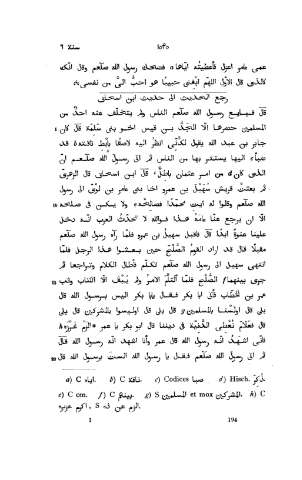 سنة ٦ ١٥٤٥
عمى عامر اعزل فأعطيته اياها فضحك رسول الله صلعم وقال انك
كالذى قال الاول اللهم ابغنى حبيبا هو احب الى من نفسى
رجع الحديث الى حديث ابن اسحاق
قال فبايع رسول الله صلعم الناس ولم يتخلف عنه احد من
المسلمين حضرها الا الجد بن قيس اخو بنى سلمة قال كان
جابر بن عبد الله يقول لكأنى انظر اليه لاصقا بابط ناقته قد
ضبأ اليها يستتر بها من الناس ثم اتى رسول الله صلعم ان
الذى كان من امر عثمان باطل قال ابن اسحاق قال الزهرى
ثم بعثت قريش سهيل بن عمرو اخا بنى عامر بن لؤى الى رسول
الله صلعم وقالوا له ايت محمدا فصالحه ولا يكن فى صلحه
الا ان يرجع عنا عامه هذا فوالله لا تحدث العرب انه دخل
علينا عنوة ابدا قال فاقبل سهيل بن عمرو فلما رآه رسول الله صلعم
مقبلا قال قد اراد القوم الصلح حين بعثوا هذا الرجل فلما
انتهى سهيل الى رسول الله صلعم تكلم فأطال الكلام وتراجعا ثم
جرى بينهما الصلح فلما التأم الامر ولم يبق الا الكتاب وثب
عمر بن الخطاب فأتى ابا بكر فقال يا با بكر اليس برسول الله قال
بلى قال اولسنا بالمسلمين قال بلى قال اوليسوا بالمشركين قال بلى
قال فعلام نعطى الدنية فى ديننا قال ابو بكر يا عمر الزم غرزه
فانى اشهد انه رسول الله قال عمر وأنا اشهد انه رسول الله قال
ثم اتى رسول الله صلعم فقال يا رسول الله الست برسول الله قال
a) C اياه. b) C ناقة. c) Codices صبا d) Hisch. ذكر.
e) C om. f) C بينهم. g) S المسلمين et mox المشركين. h) C
الزم عن فه, S اكرم عزبزه.
I 194